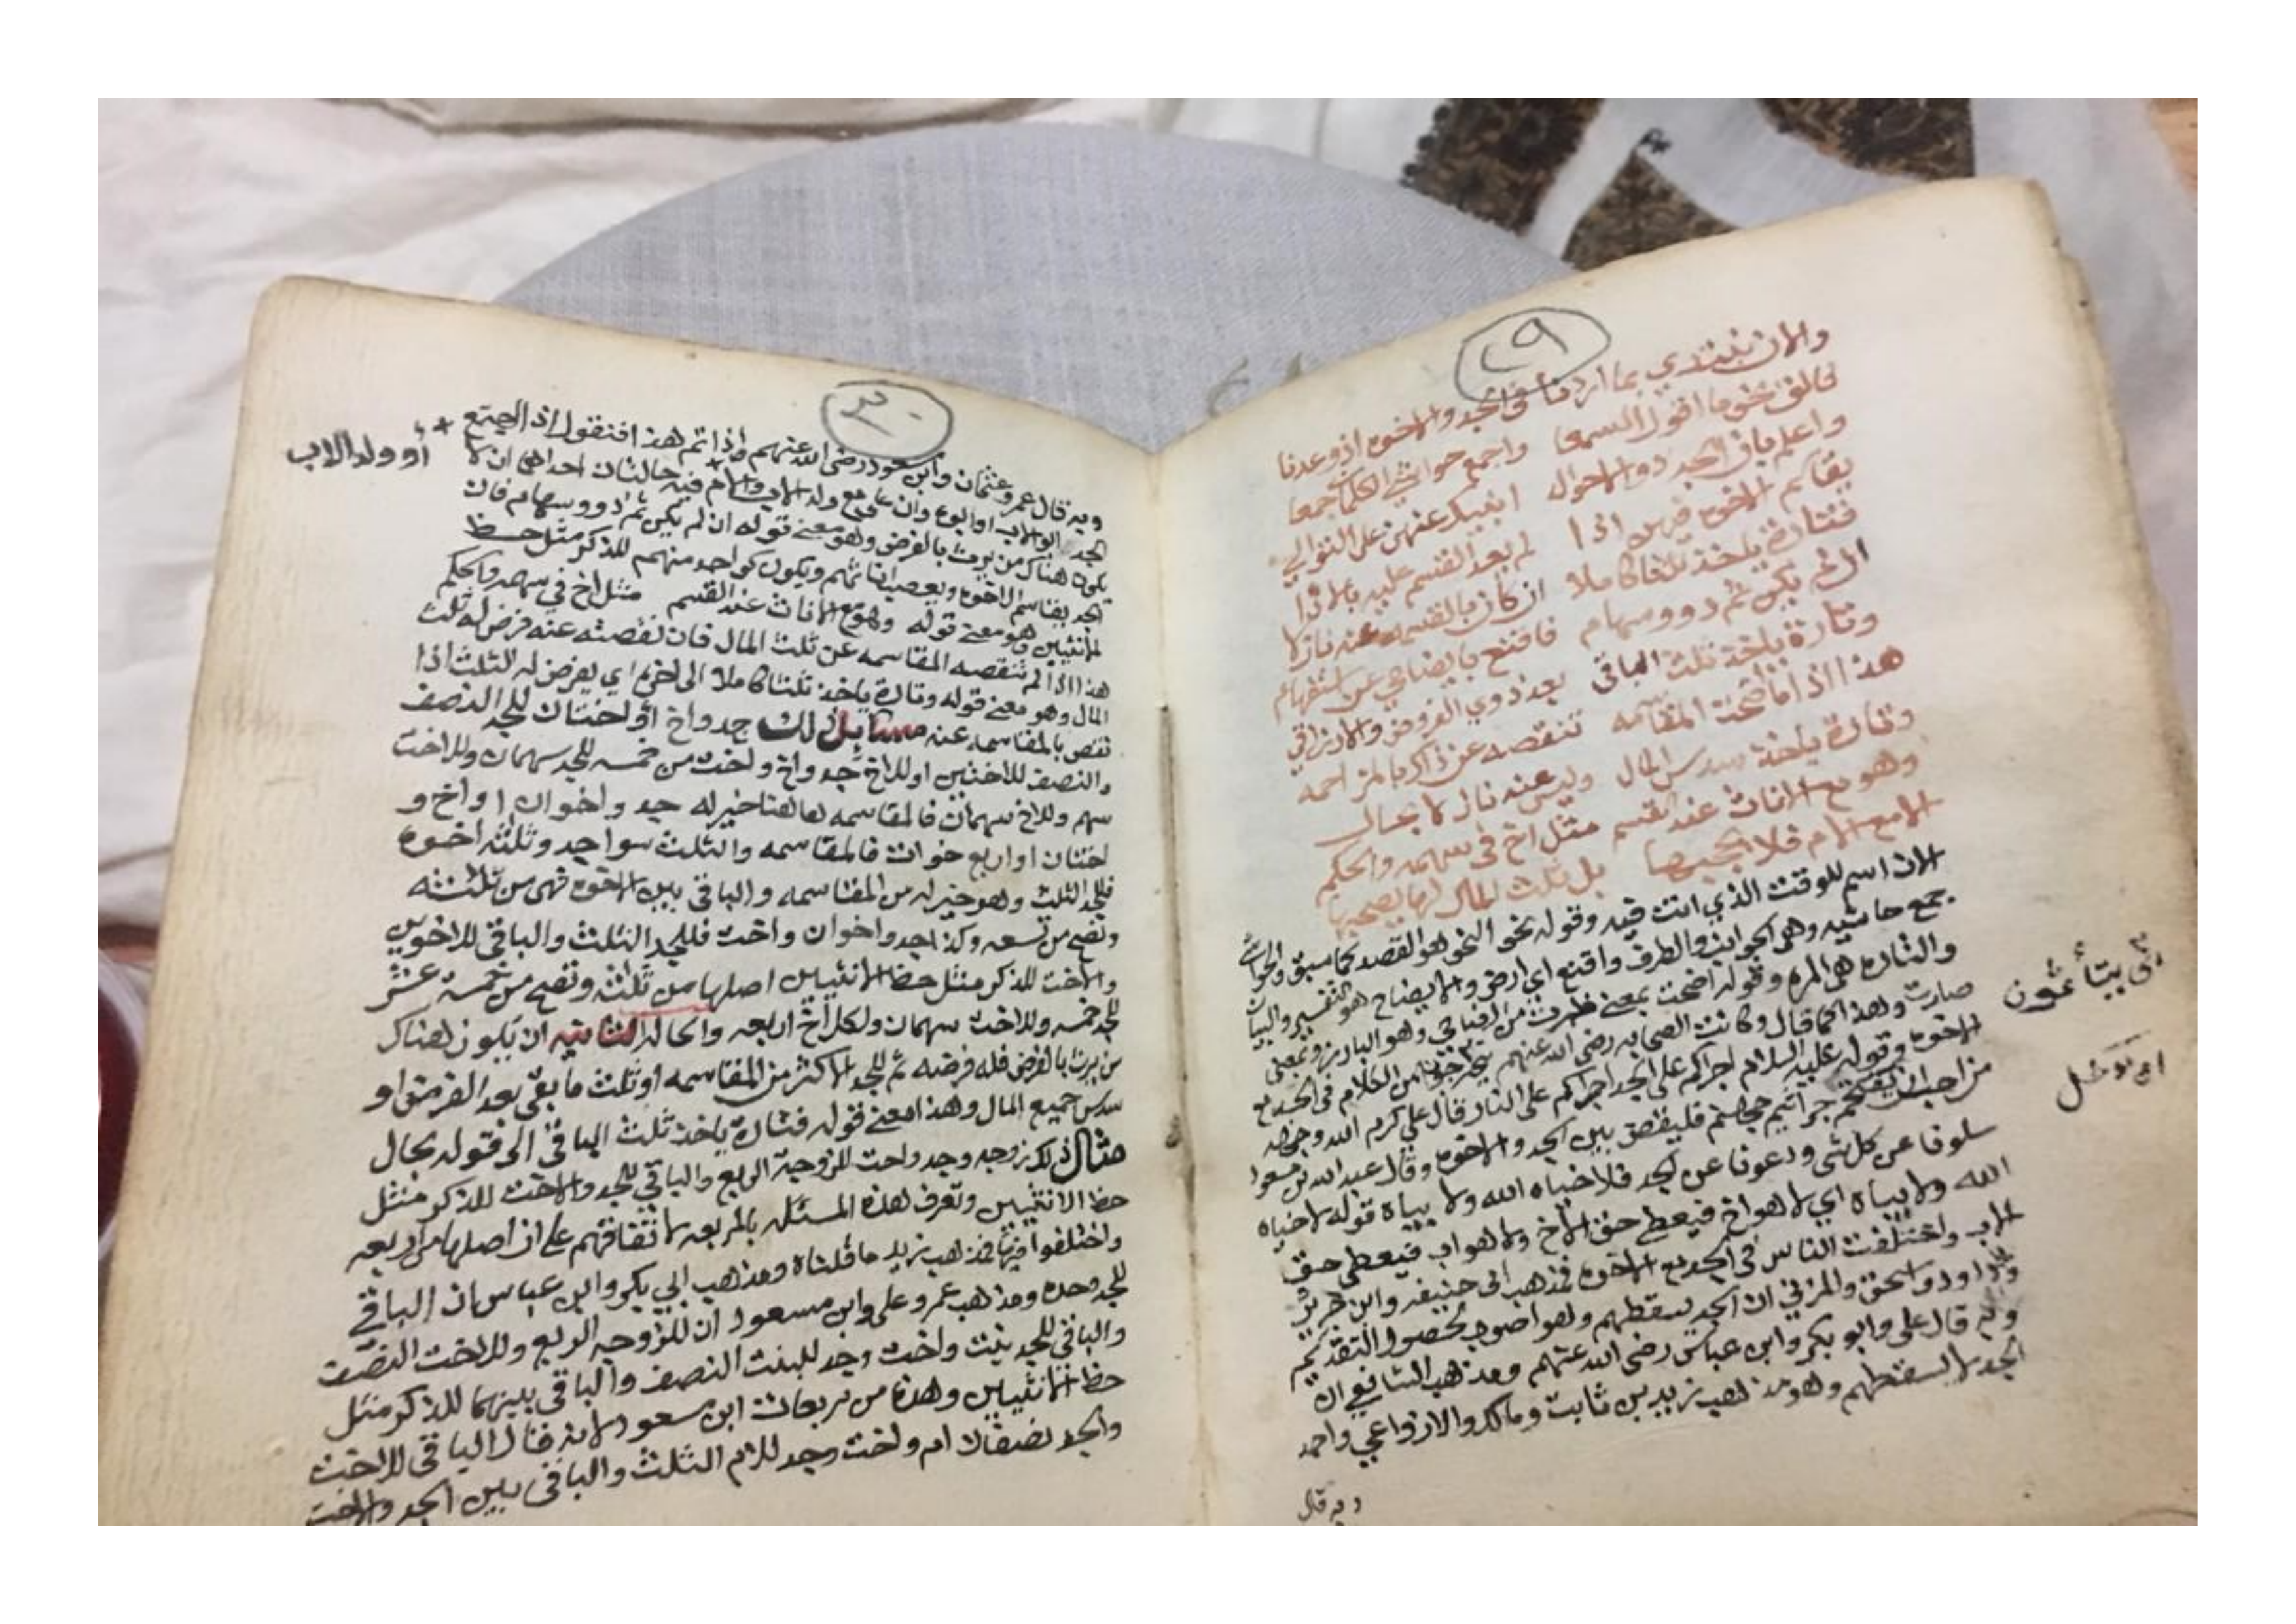 ٢٩
والان نبتدي بما اردنا في الجد والاخوه اذ وعدنا
فالق نحو ما اقول السمعا واجمع حواشي الكلمات جمعا
واعلم بان الجد ذو احوال انبيك عنهن على التوالي
يقاسم الاخوة فيهن اذا لم يعد القسم عليه بالاذا
فتارة ياخذ ثلثا كاملا ان كان بالقسمه عنه نازلا
ان لم يكن ثم ذوو سهام فاقنع بايضاحي عن استفهام
وتارة ياخذ ثلث الباقي بعد ذوي الفروض والارزاق
هذا اذا ما ضحت المقاسمه تنقصه عن ذاك بالمزاحمه
وتارة ياخذ سدس المال وليس عنه نازلا بحال
وهو مع الاناث عند القسم مثل اخ في سهمه والحكم
الا مع الام فلا يحجبها بل ثلث المال لها يصحبها
الان اسم للوقت الذي انت فيه وقوله نحو النحو هو القصد كما سبق والحواشي
جمع حاشيه وهي الجوانب والطرف واقنع اي ارض والايضاح هو التفسير والبيان
والتاره هي المره وقوله اضحت بمعنى ظهرت من الضاحي وهو البارز وبمعنى
صارت ولهذا كما قال وكانت الصحابه رضي الله عنهم يتحرجون من الكلام في الجد مع
الاخوه وقوله عليه السلام اجراكم على الجد اجراكم على النار وقال علي كرم الله وجهه
من احب ان يتقحم جراثيم جهنم فليقض بين الجد والاخوه وقال عبد الله بن مسعود
سلونا عن كل شي ودعونا عن الجد فلا حياه الله ولا بياه قوله لا حياه
الله ولا بياه اي لا هو اخ فيعطى حق الاخ ولا هو اب فيعطى حق
الاب واختلفت الناس في الجد مع الاخوه فمذهب ابي حنيفه وابن جرير
وداود واسحق والمزني ان الجد يسقطهم وهو اصوب لحصول التقديم
وبه قال علي وابو بكر وابن عباس رضي الله عنهم ومذهب الشافعي ان
الجد لا يسقطهم وهو مذهب زيد بن ثابت ومالك والاوزاعي واحمد
وبه قال
اي يدخل
٣٠
وبه قال عمر وعثمان وابن مسعود رضي الله عنهم واذا تم هذا فنقول اذا اجتمع
أو ولد الاب
الجد ابو الاب او ابوه وان علا مع ولد الاب والام فيه حالتان احداهما ان لا
يكون هناك من يرث بالفرض وهو معنى قوله ان لم يكن ثم ذوو سهام فان
الجد يقاسم الاخوه ويعصب اناثهم ويكون كواحد منهم للذكر مثل حظ
الانثيين وهو معنى قوله وهو مع الاناث عند القسم مثل اخ في سهمه والحكم
هذا اذا لم تنقصه المقاسمه عن ثلث المال فان نقصته عنه فرض له ثلث
المال وهو معنى قوله وتارة ياخذ ثلثا كاملا الى اخره اي يفرض له الثلث اذا
نقص بالمقاسمه عنه مسايل ذلك جد واخ او اختان للجد النصف
والنصف للاختين او للاخ جد واخ واخت من خمسه للجد سهمان وللاخت
سهم وللاخ سهمان فالمقاسمه هاهنا خير له جد واخوان او اخ و
اختان او اربع خوات فالمقاسمه والثلث سوا جد وثلثه اخوه
فللجد الثلث وهو خير له من المقاسمه والباقي بين الاخوه فهي من ثلثه
وتصح من تسعه وكذا جد واخوان واخت فللجد الثلث والباقي للاخوين
والاخت للذكر مثل حظ الانثيين اصلها من ثلثه وتصح من خمسة عشر
للجد خمسه وللاخت سهمان ولكل اخ اربعه والحاله الثانيه ان يكون هناك
من يرث بالفرض فله فرضه ثم للجد الاكثر من المقاسمه او ثلث ما بقي بعد الفرض او
سدس جميع المال وهذا معنى قوله فتارة ياخذ ثلث الباقي الى قوله بحال
مثال ذلك زوجه وجد واخت للزوجة الربع والباقي للجد والاخت للذكر مثل
حظ الانثيين وتعرف هذه المسئله بالمربعه لاتفاقهم على ان اصلها من اربعه
واختلفوا فيها فمذهب زيد ما قلناه ومذهب ابي بكر وابن عباس ان الباقي
للجد وحده ومذهب عمر وعلي وابن مسعود ان للزوجه الربع وللاخت النصف
والباقي للجد بنت واخت وجد للبنت النصف والباقي بينهما للذكر مثل
حظ الانثيين وهذه من مربعات ابن مسعود لانه قال الباقي للاخت
والجد نصفان ام واخت وجد للام الثلث والباقي بين الجد والاخت